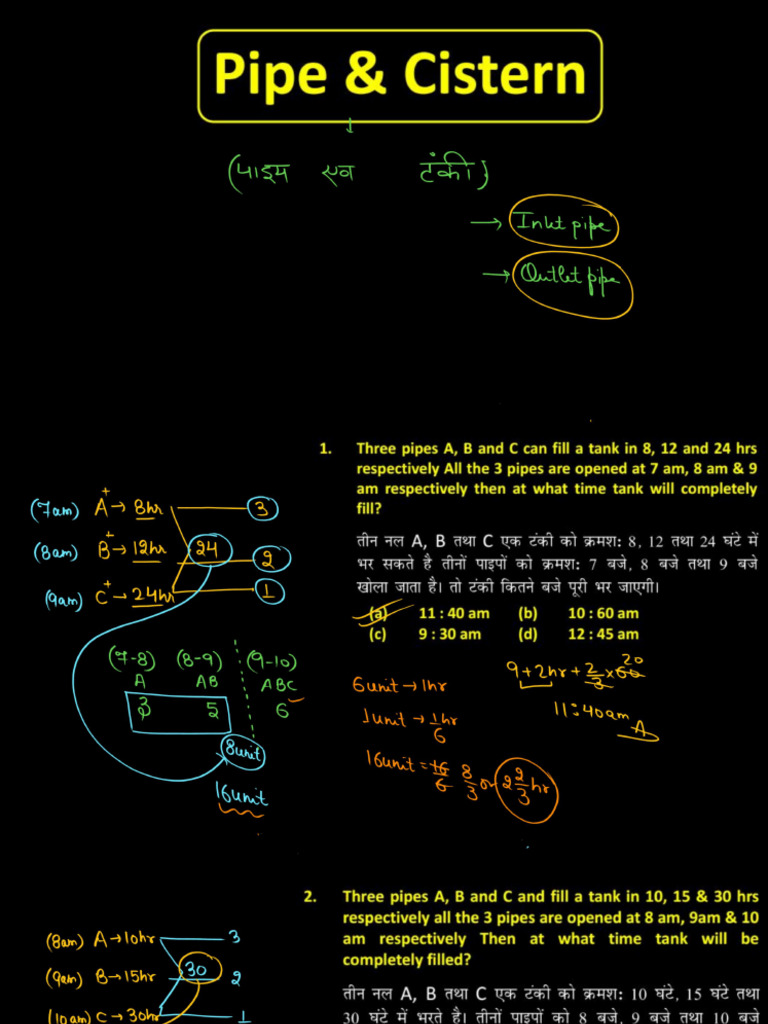 Pipe & Cistern
(पाइप एव टंकी)
→ Inlet pipe
→ Outlet pipe
1. Three pipes A, B and C can fill a tank in 8, 12 and 24 hrs
respectively All the 3 pipes are opened at 7 am, 8 am & 9
am respectively then at what time tank will completely
fill?
तीन नल A, B तथा C एक टंकी को क्रमश: 8, 12 तथा 24 घंटे में
भर सकते है तीनों पाइपों को क्रमश: 7 बजे, 8 बजे तथा 9 बजे
खोला जाता है। तो टंकी कितने बजे पूरी भर जाएगी।
(a) 11 : 40 am (b) 10 : 60 am
(c) 9 : 30 am (d) 12 : 45 am
(7am) A+ → 8hr 3
(8am) B+ → 12hr 24 2
(9am) C+ → 24hr 1
(7-8) (8-9) (9-10)
A AB ABC
3 5 6
8unit
16unit
6unit → 1hr
1unit → 1/6 hr
16unit = 16/6 8/3 or 2 2/3 hr
9 + 2hr + 2/3 × 60 20
11:40am
A
2. Three pipes A, B and C and fill a tank in 10, 15 & 30 hrs
respectively all the 3 pipes are opened at 8 am, 9am & 10
am respectively Then at what time tank will be
completely filled?
तीन नल A, B तथा C एक टंकी को क्रमश: 10 घंटे, 15 घंटे तथा
30 घंटे में भरते है। तीनों पाइपों को 8 बजे, 9 बजे तथा 10 बजे
(8am) A → 10hr 3
(9am) B → 15hr 30 2
(10am) C → 30hr 1